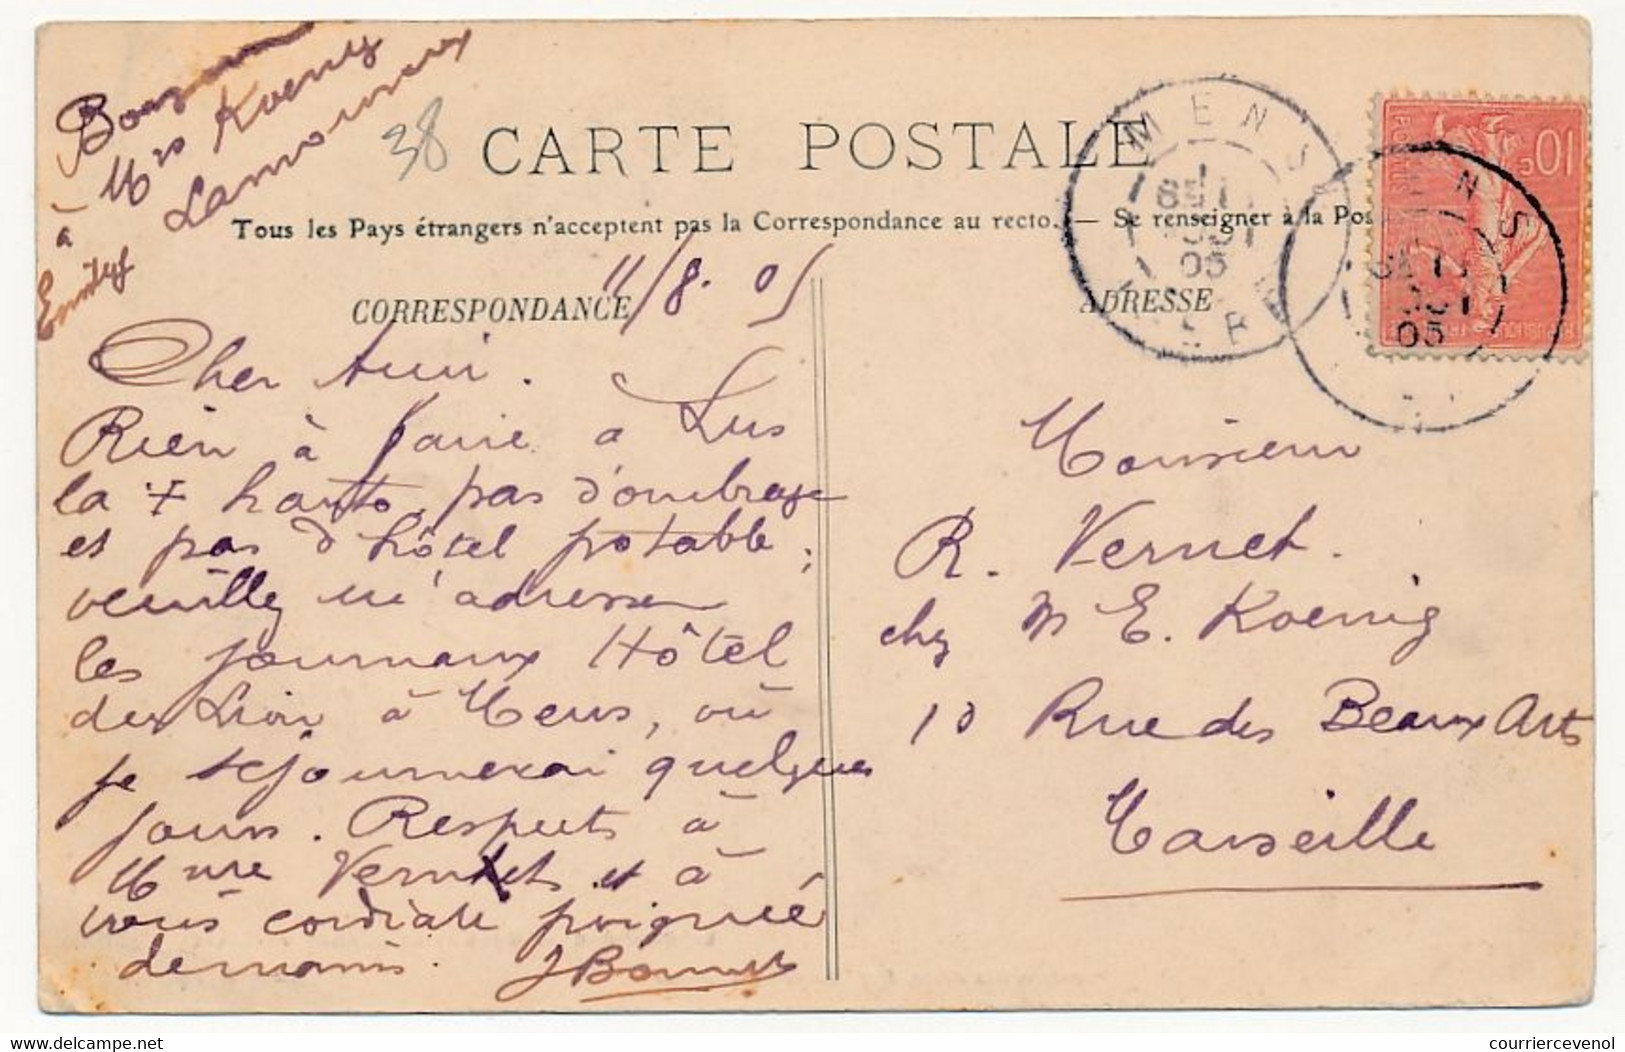 Bonjour
à Mrs Koenig
Lamoureux
à
Emily
38
CARTE POSTALE
Tous les Pays étrangers n'acceptent pas la Correspondance au recto. — Se renseigner à la Pos
11/8. 05
CORRESPONDANCE
ADRESSE
Cher Ami.
Rien à faire a Lus
la + haute, pas d'ombrage
et pas d'hôtel potable;
veuillez m'adresser
les journaux Hôtel
du Lion à Mens, où
je séjournerai quelques
jours. Respects à
Mme Vernet et à
vous cordiale poignée
demains. JBonnet
Monsieur
R. Vernet.
chez M E. Koenig
10 Rue des Beaux Arts
Marseille
MENS
ISERE
11
AOUT
05
MENS
05
10c
POSTES
www.delcampe.net
courriercevenol